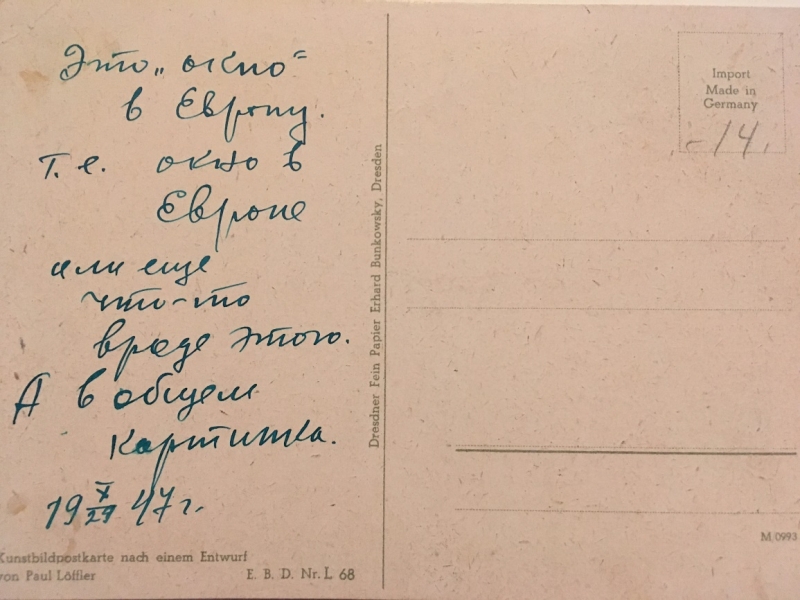 Это „окно“
в Европу.
т.е. окно в
Европе
или еще
что-то
вроде этого.
А в общем
картинка.
19 X/29 47 г.
Kunstbildpostkarte nach einem Entwurf
von Paul Löffler
E. B. D. Nr. L 68
Dresdner Fein Papier Erhard Bunkowsky, Dresden
Import
Made in
Germany
-14.
M/0993